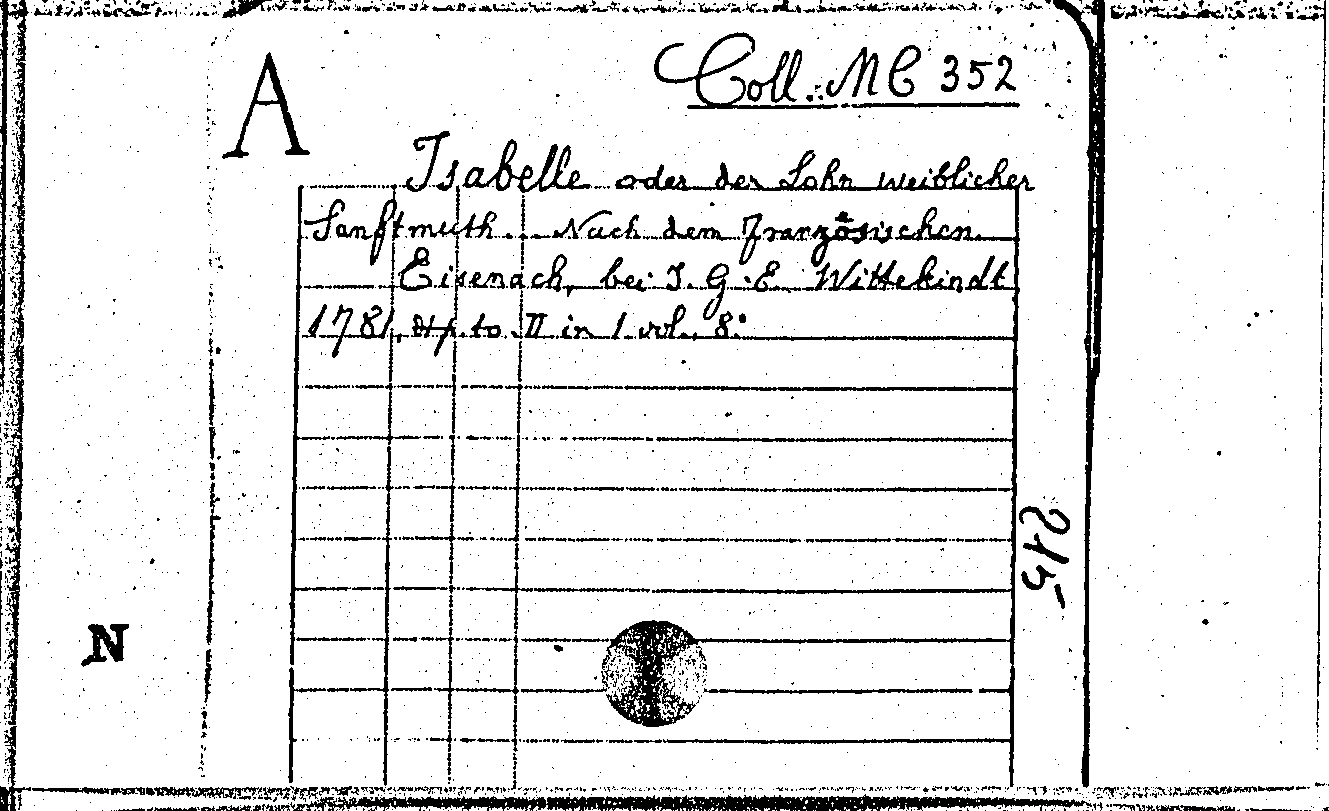 A
Coll. MC 352
Isabelle oder der Lohn weiblicher
Sanftmuth... Nach dem Französischen.
Eisenach, bei J. G. E. Wittekindt
1781, to. II in 1 vol. 8º
215
N